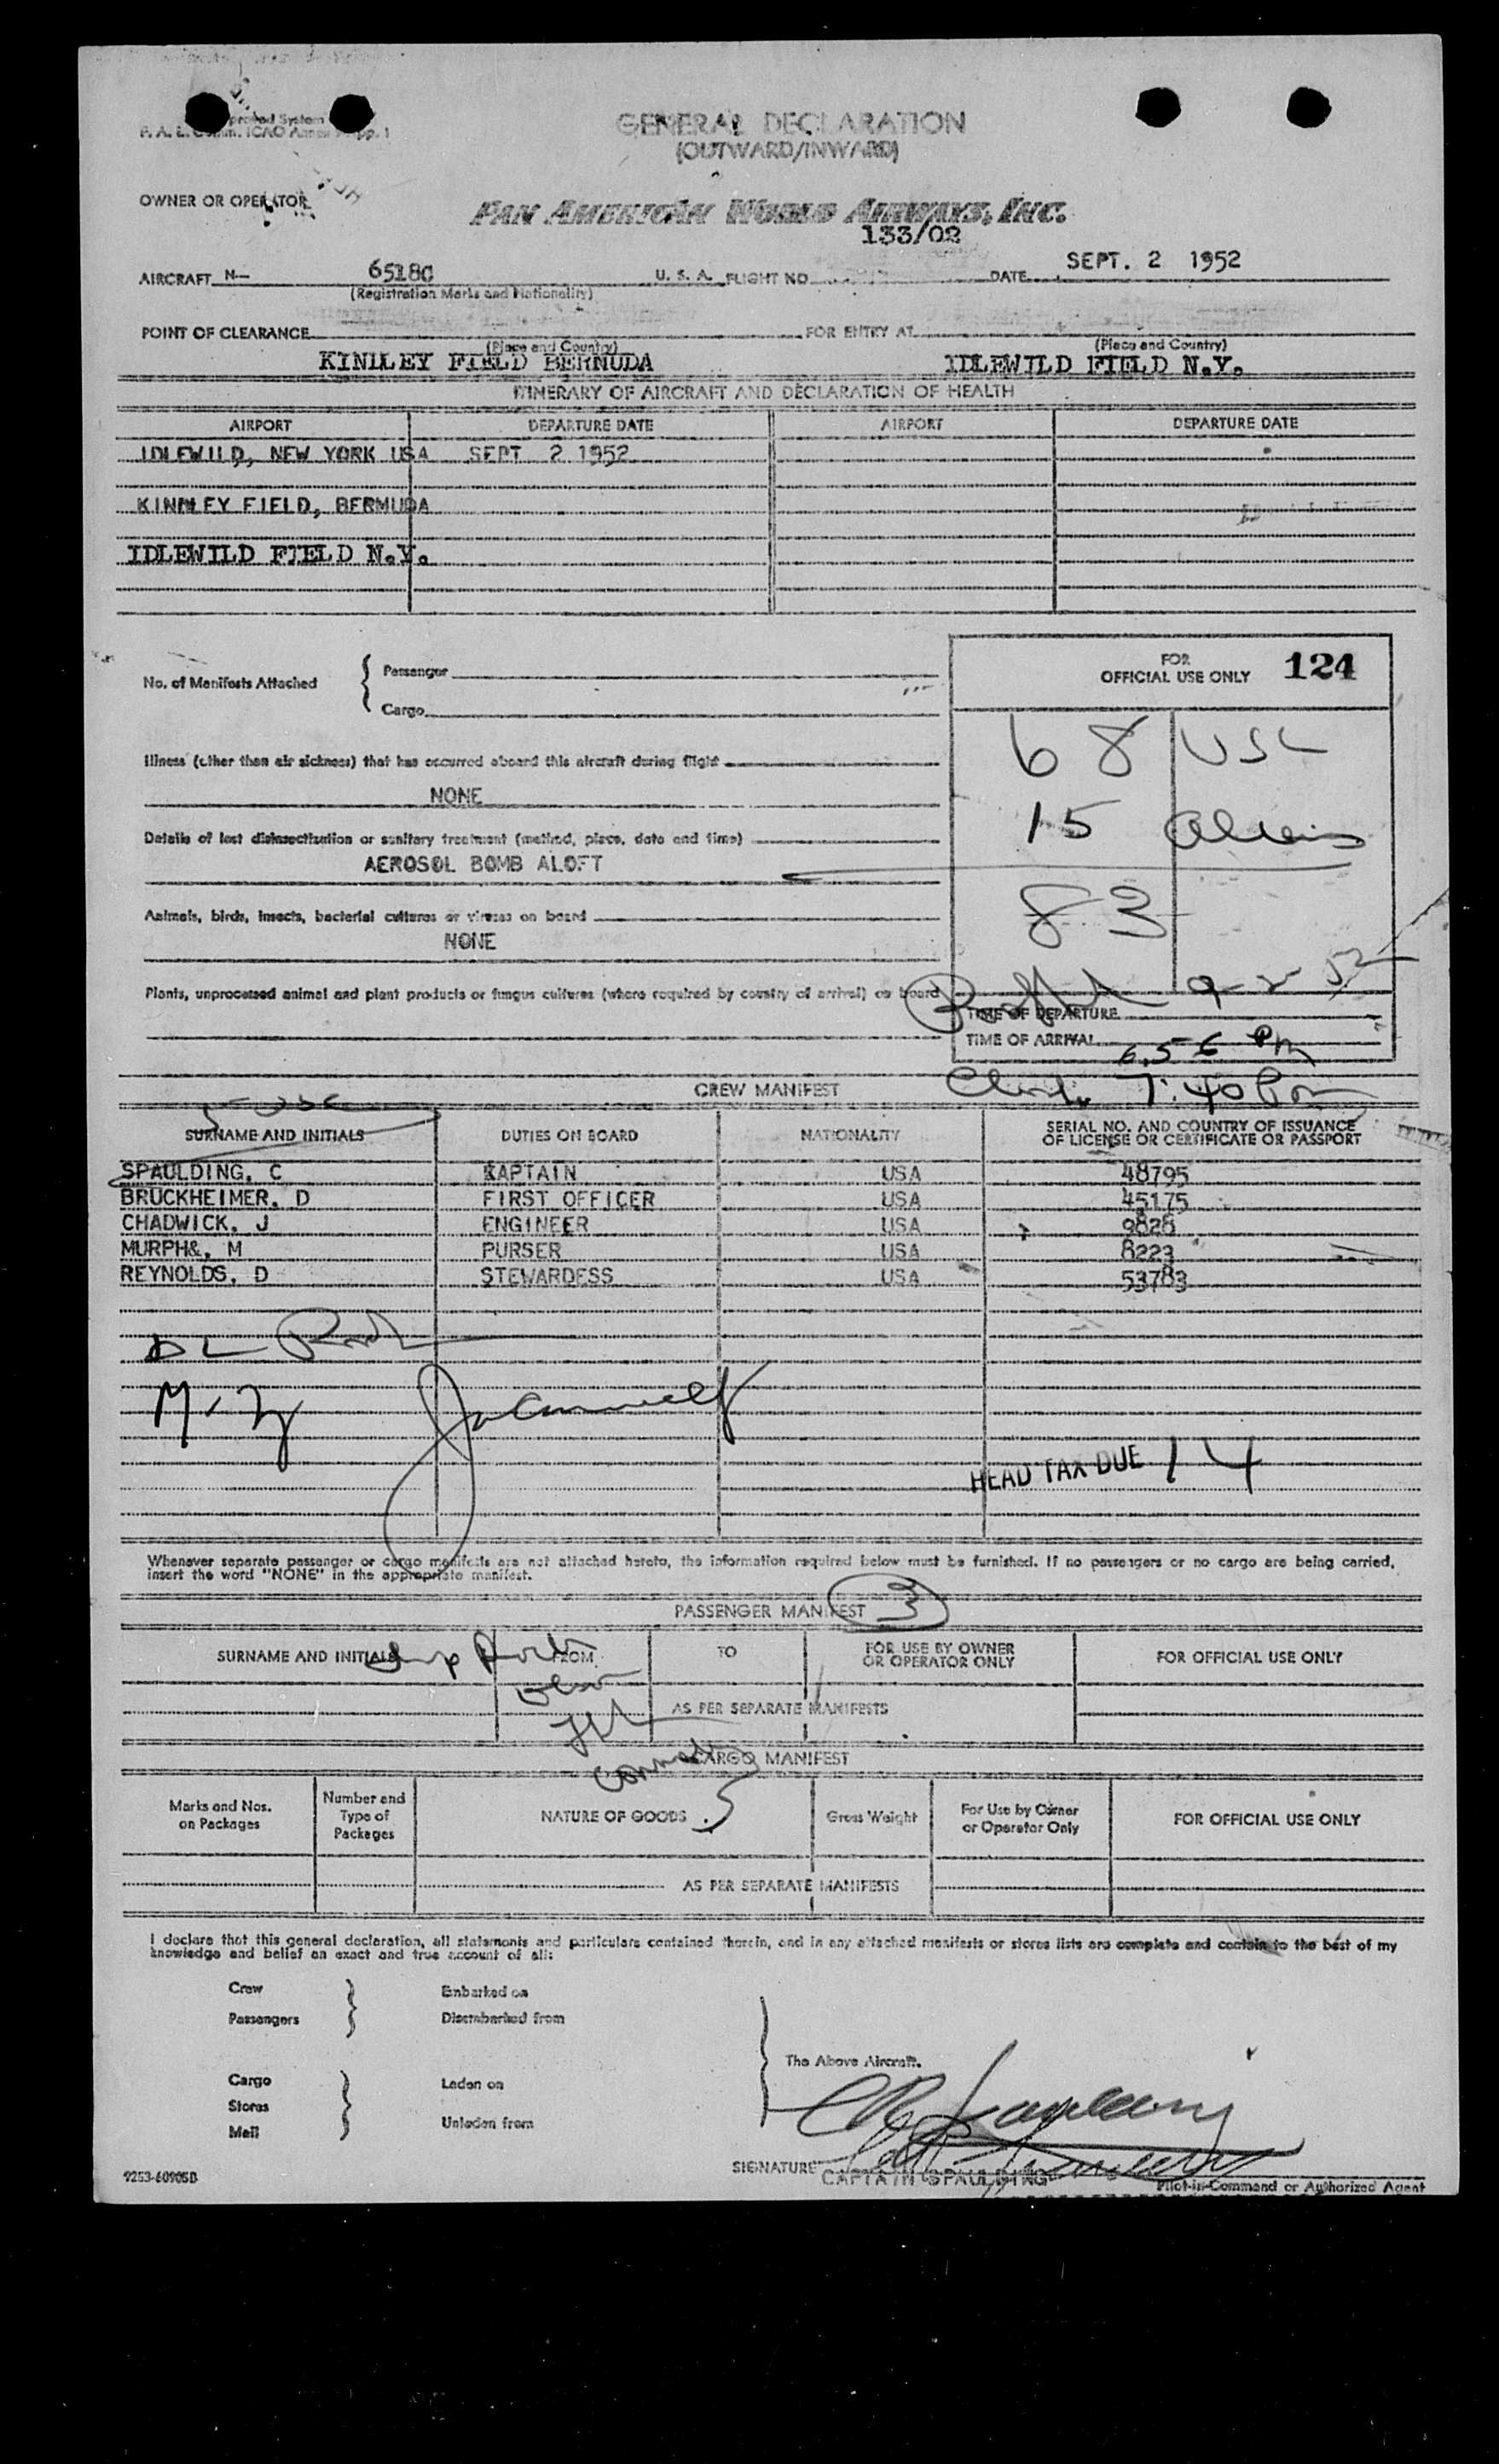 proved System
F. A. L. Comm. ICAO Annex App. 1
GENERAL DECLARATION
(OUTWARD/INWARD)
OWNER OR OPERATOR
PAN AMERICAN WORLD AIRWAYS, INC.
133/02
AIRCRAFT N— 65180 U. S. A. FLIGHT NO. DATE SEPT. 2 1952
(Registration Marks and Nationality)
POINT OF CLEARANCE FOR ENTRY AT
(Place and Country) (Place and Country)
KINDLEY FIELD BERNUDA IDLEWILD FIELD N.Y.
ITINERARY OF AIRCRAFT AND DECLARATION OF HEALTH
AIRPORT DEPARTURE DATE AIRPORT DEPARTURE DATE
IDLEWILD, NEW YORK USA SEPT 2 1952
KINDLEY FIELD, BERMUDA
IDLEWILD FIELD N.Y.
FOR
OFFICIAL USE ONLY 124
No. of Manifests Attached { Passenger
Cargo
68 USC
Illness (other than air sickness) that has occurred aboard this aircraft during flight
NONE
15 Aliens
Details of last disinsectization or sanitary treatment (method, place, date and time)
AEROSOL BOMB ALOFT
83
Animals, birds, insects, bacterial cultures or viruses on board
NONE
9-2-52
Plants, unprocessed animal and plant products or fungus cultures (where required by country of arrival) on board
TIME OF DEPARTURE
TIME OF ARRIVAL 6.56 PM
7:40 Pm
CREW MANIFEST
5 USC
SURNAME AND INITIALS DUTIES ON BOARD NATIONALITY SERIAL NO. AND COUNTRY OF ISSUANCE
OF LICENSE OR CERTIFICATE OR PASSPORT
SPAULDING, C KAPTAIN USA 48795
BRUCKHEIMER, D FIRST OFFICER USA 45175
CHADWICK, J ENGINEER USA 9828
MURPH&, M PURSER USA 8223
REYNOLDS, D STEWARDESS USA 53783
HEAD TAX DUE 14
Whenever separate passenger or cargo manifests are not attached hereto, the information required below must be furnished. If no passengers or no cargo are being carried,
insert the word "NONE" in the appropriate manifest.
PASSENGER MANIFEST 3
SURNAME AND INITIALS FROM TO FOR USE BY OWNER
OR OPERATOR ONLY FOR OFFICIAL USE ONLY
AS PER SEPARATE MANIFESTS
CARGO MANIFEST
Marks and Nos.
on Packages
Number and
Type of
Packages
NATURE OF GOODS
Gross Weight
For Use by Owner
or Operator Only
FOR OFFICIAL USE ONLY
AS PER SEPARATE MANIFESTS
I declare that this general declaration, all statements and particulars contained therein, and in any attached manifests or stores lists are complete and contain to the best of my
knowledge and belief an exact and true account of all:
Crew Embarked on
Passengers Disembarked from
The Above Aircraft.
Cargo Laden on
Stores
Mail Unladen from
SIGNATURE
CAPTAIN SPAULDING
Pilot-in-Command or Authorized Agent
9253-60905B